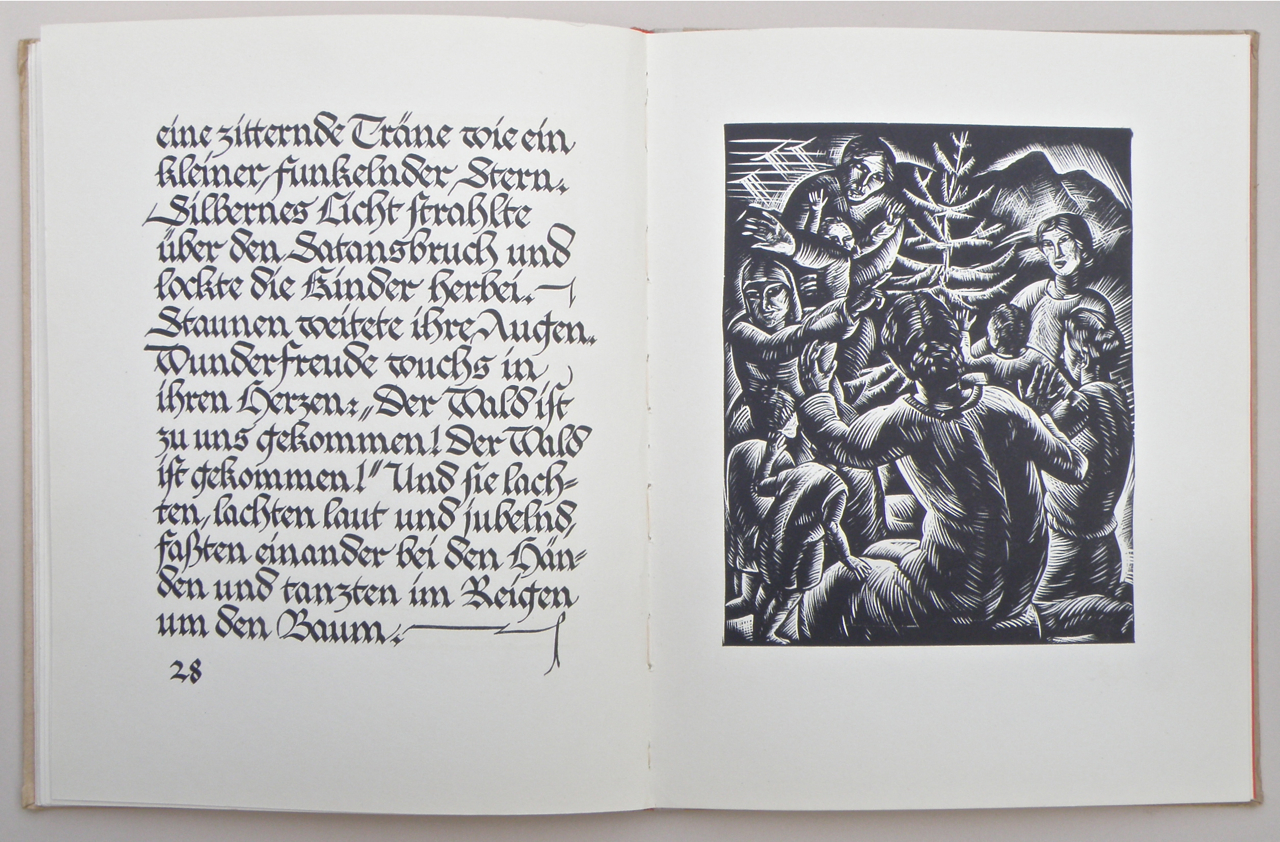 eine zitternde Träne wie ein
kleiner, funkelnder Stern.
Silbernes Licht strahlte
über den Satansbruch und
lockte die Kinder herbei. —
Staunen weitete ihre Augen.
Wunderfreude wuchs in
ihren Herzen: „Der Wald ist
zu uns gekommen! Der Wald
ist gekommen!" Und sie lach-
ten, lachten laut und jubelnd,
faßten einander bei den Hän-
den und tanzten im Reigen
um den Baum. —
28